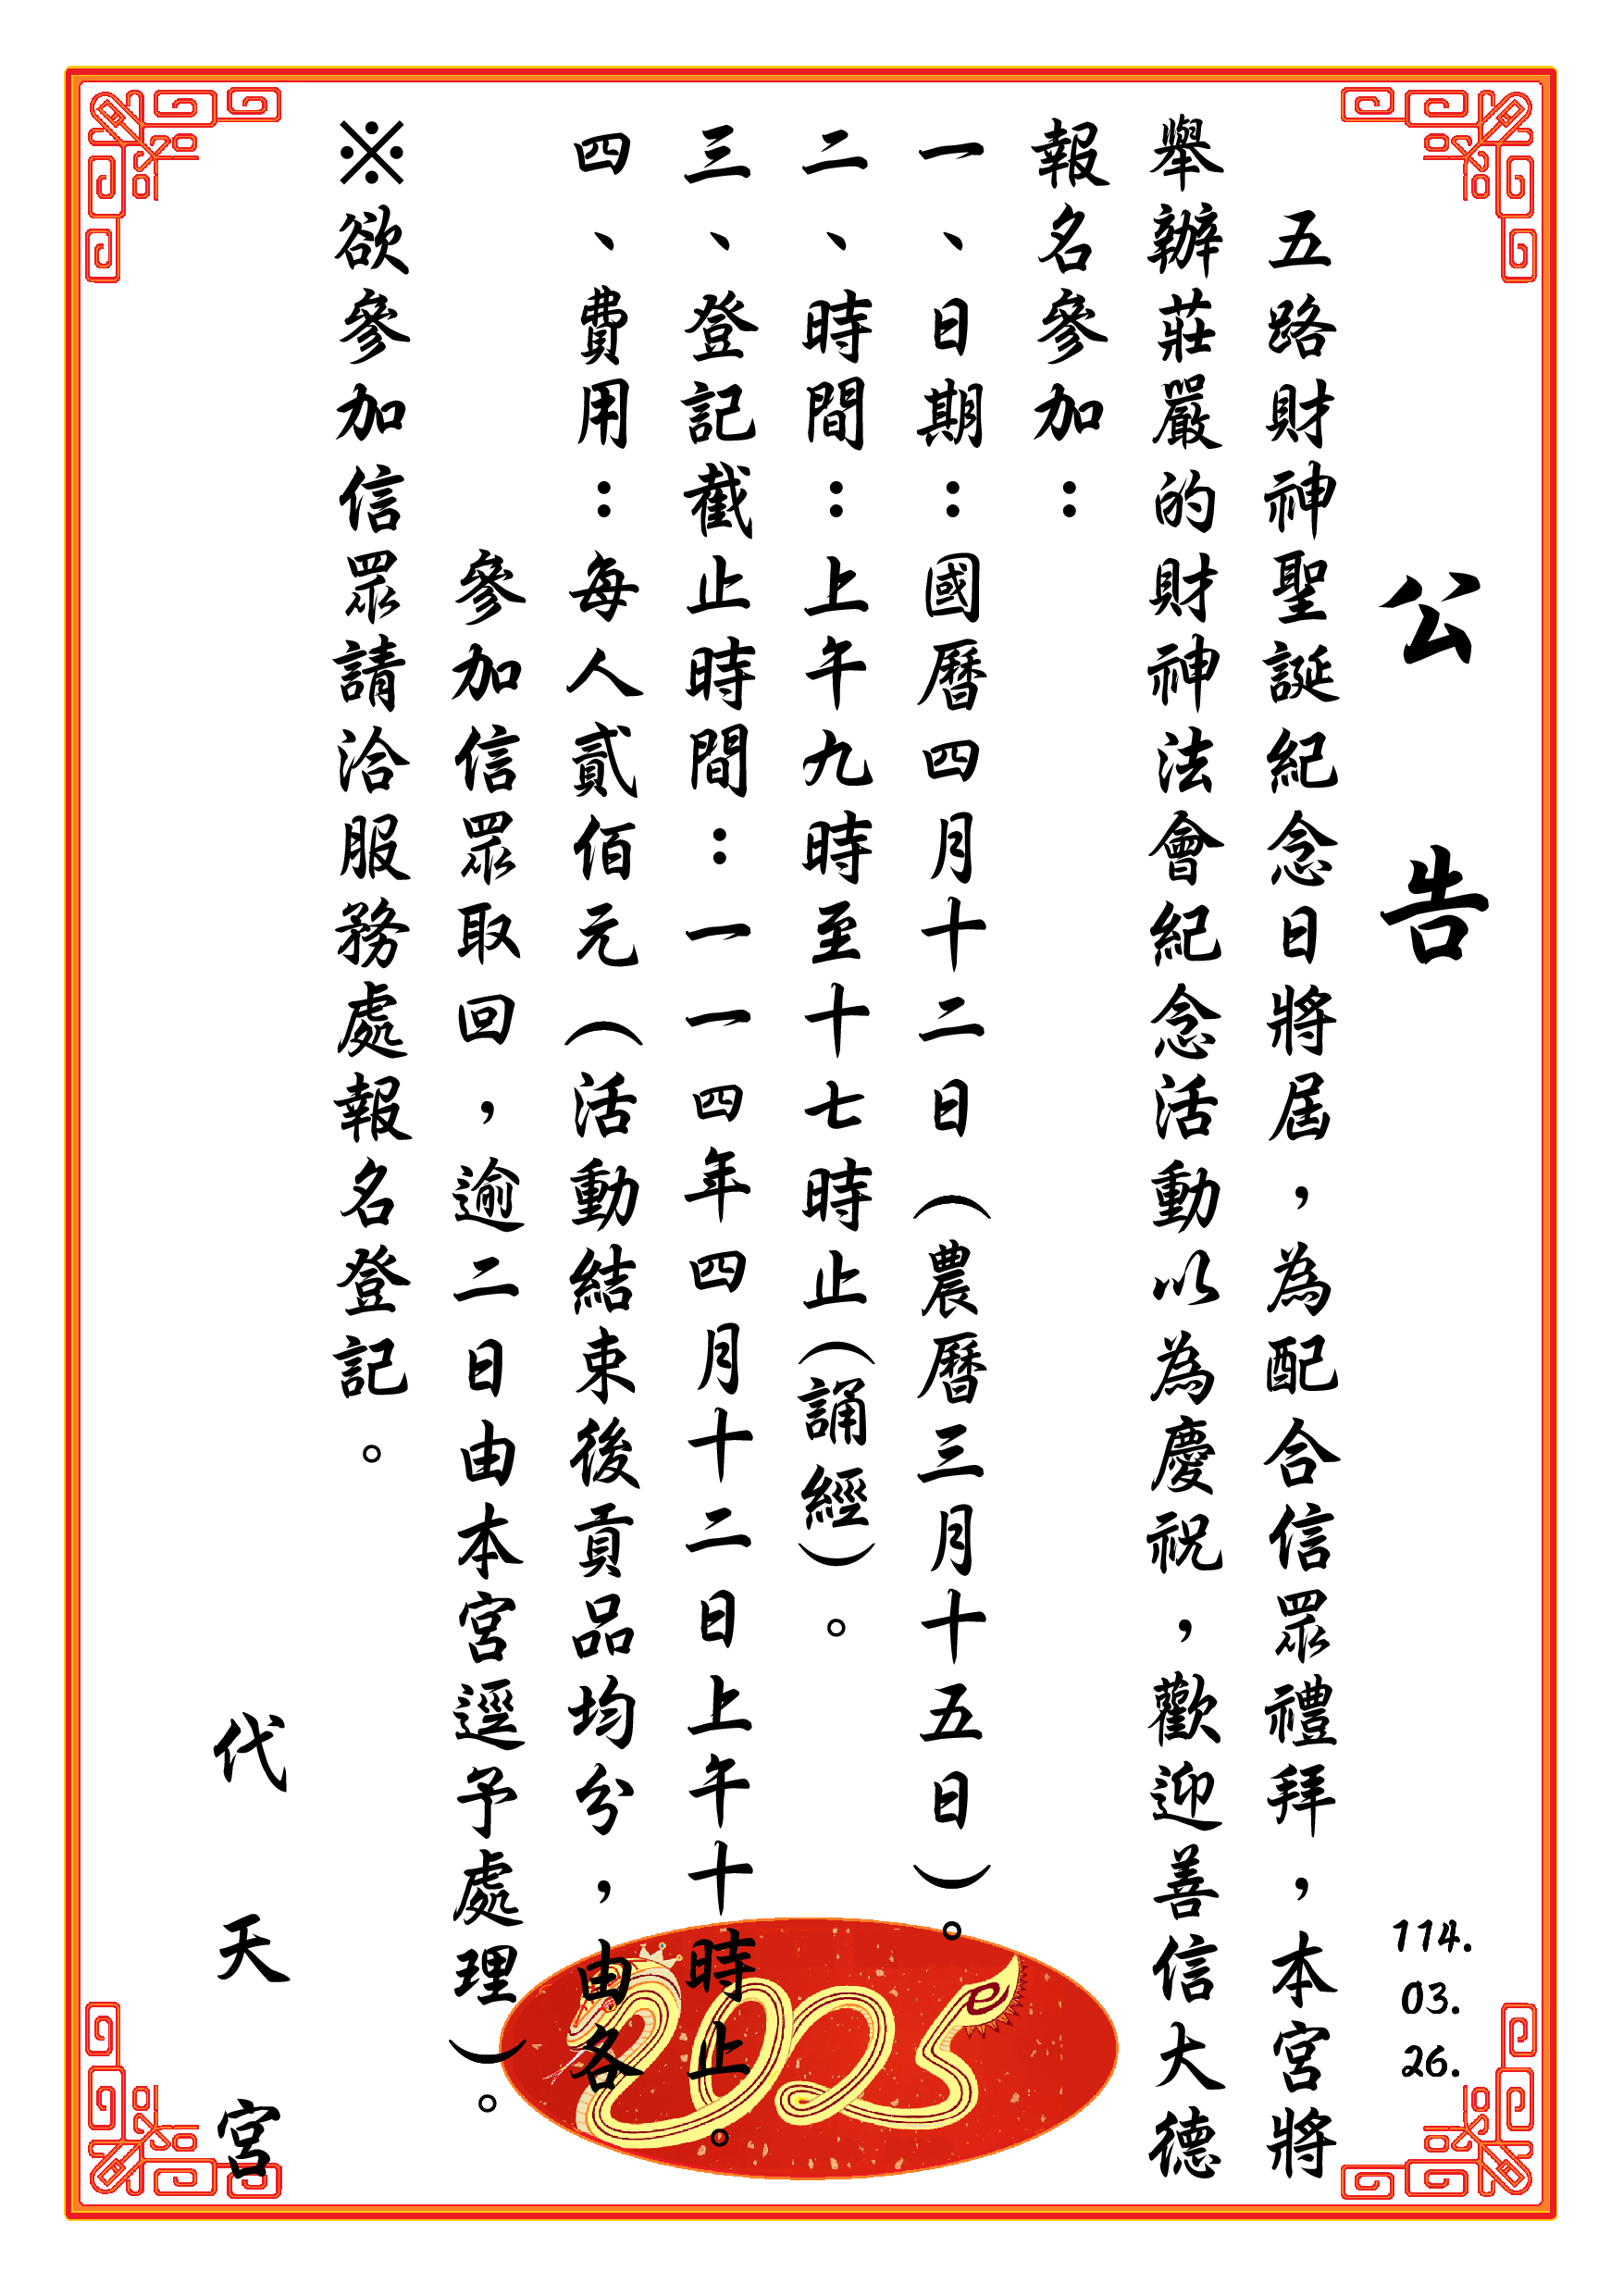 公告
114.
03.
26.
五路財神聖誕紀念日將屆，為配合信眾禮拜，本宮將
舉辦莊嚴的財神法會紀念活動以為慶祝，歡迎善信大德
報名參加：
一、日期：國曆四月十二日（農曆三月十五日）。
二、時間：上午九時至十七時止（誦經）。
三、登記截止時間：一一四年四月十二日上午十時止。
四、費用：每人貳佰元（活動結束後貢品均分，由各
參加信眾取回，逾二日由本宮逕予處理）。
※欲參加信眾請洽服務處報名登記。
代天宮
2025